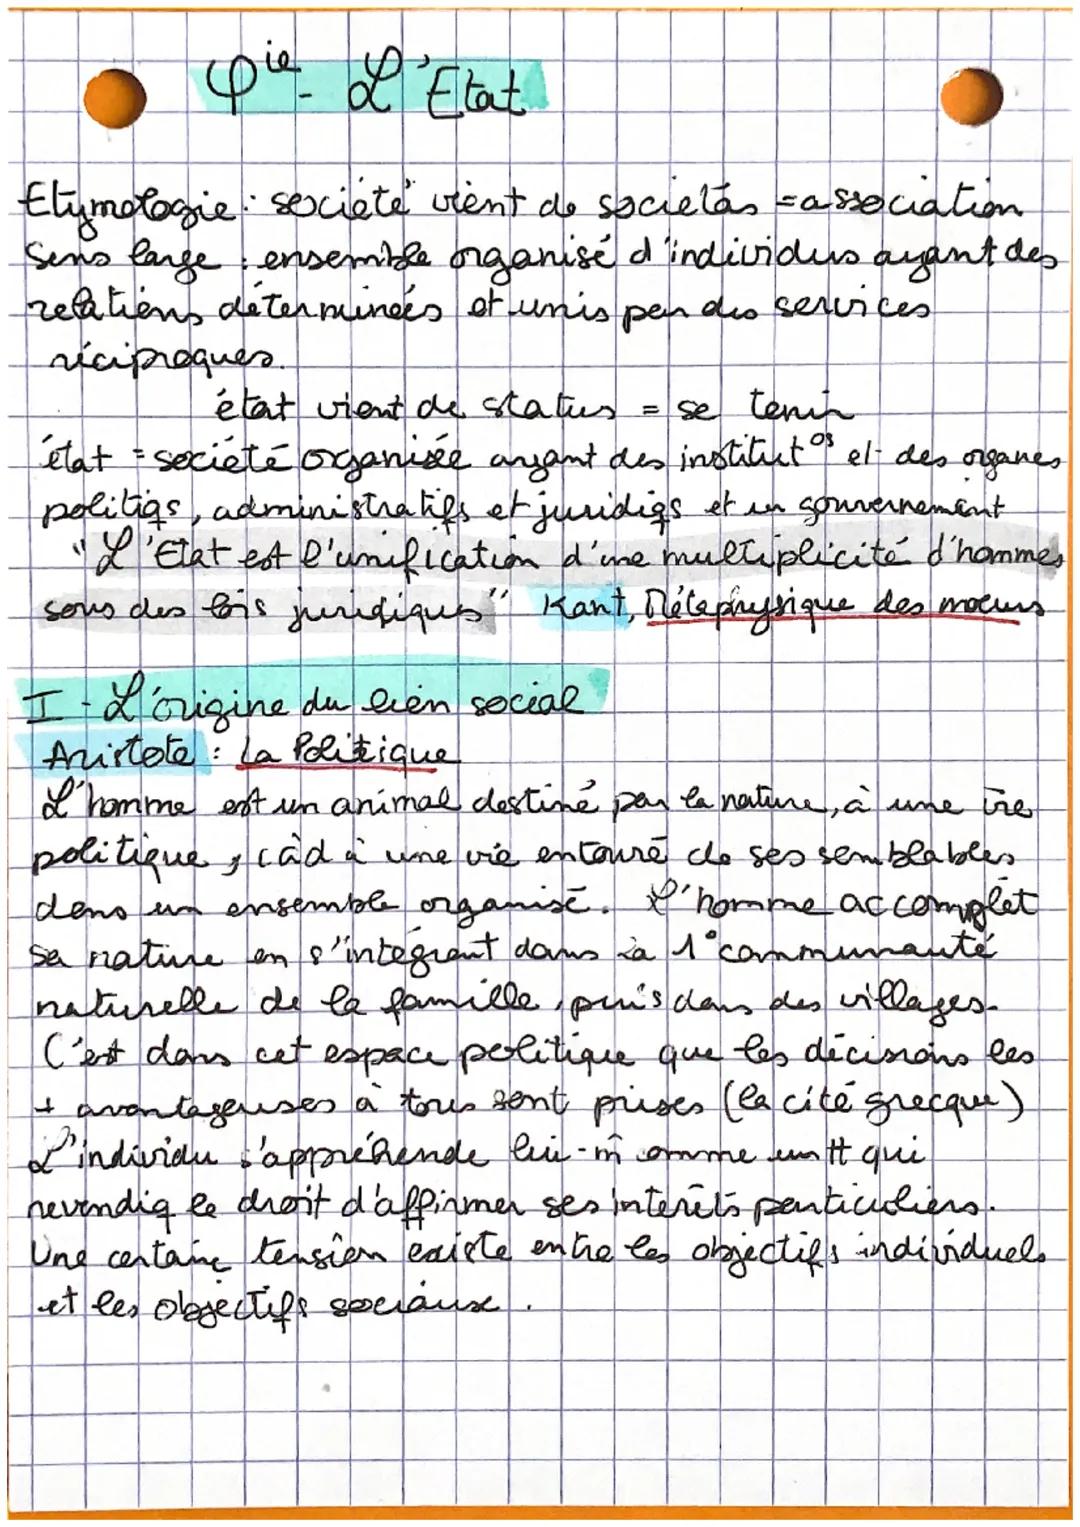 φie - L'Etat
Etymologie : société vient de societas = association
Sens large : ensemble organisé d'individus ayant des
relations déterminées et unis par des services
réciproques.
état vient de status = se tenir
état = société organisée ayant des institutos et des organes
politiqs, administratifs et juridiqs et un gouvernement
"L'Etat est l'unification d'une multiplicité d'hommes
sous des lois juridiques" Kant, Métaphysique des moeurs
I - L'origine du lien social
Aristote : La Politique
L'homme est un animal destiné par la nature, à une vie
politique, càd à une vie entouré de ses semblables
dans un ensemble organisé. L'homme accomplit
sa nature en s'intégrant dans la 1° communauté
naturelle de la famille, puis dans des villages.
C'est dans cet espace politique que les décisions les
+ avantageuses à tous sont prises (la cité grecque)
L'individu s'appréhende lui-m̂ comme un tt qui
revendiq le droit d'affirmer ses intérêts particuliers.
Une certaine tension existe entre les objectifs individuels
et les objectifs sociaux.